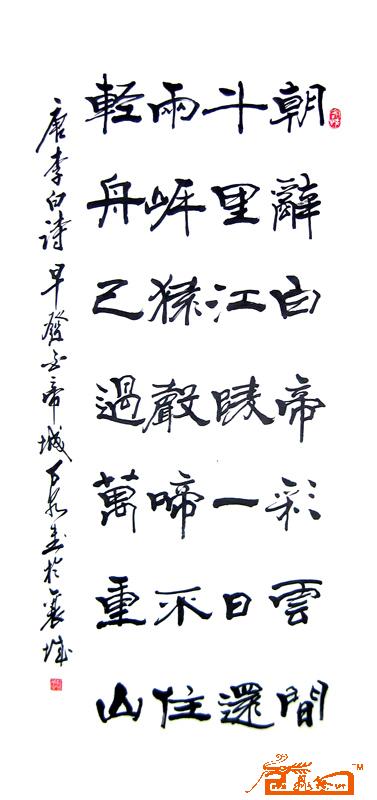 朝辭白帝彩雲間
千里江陵一日還
兩岸猿聲啼不住
輕舟已過萬重山
唐李白詩早發白帝城書於襄城